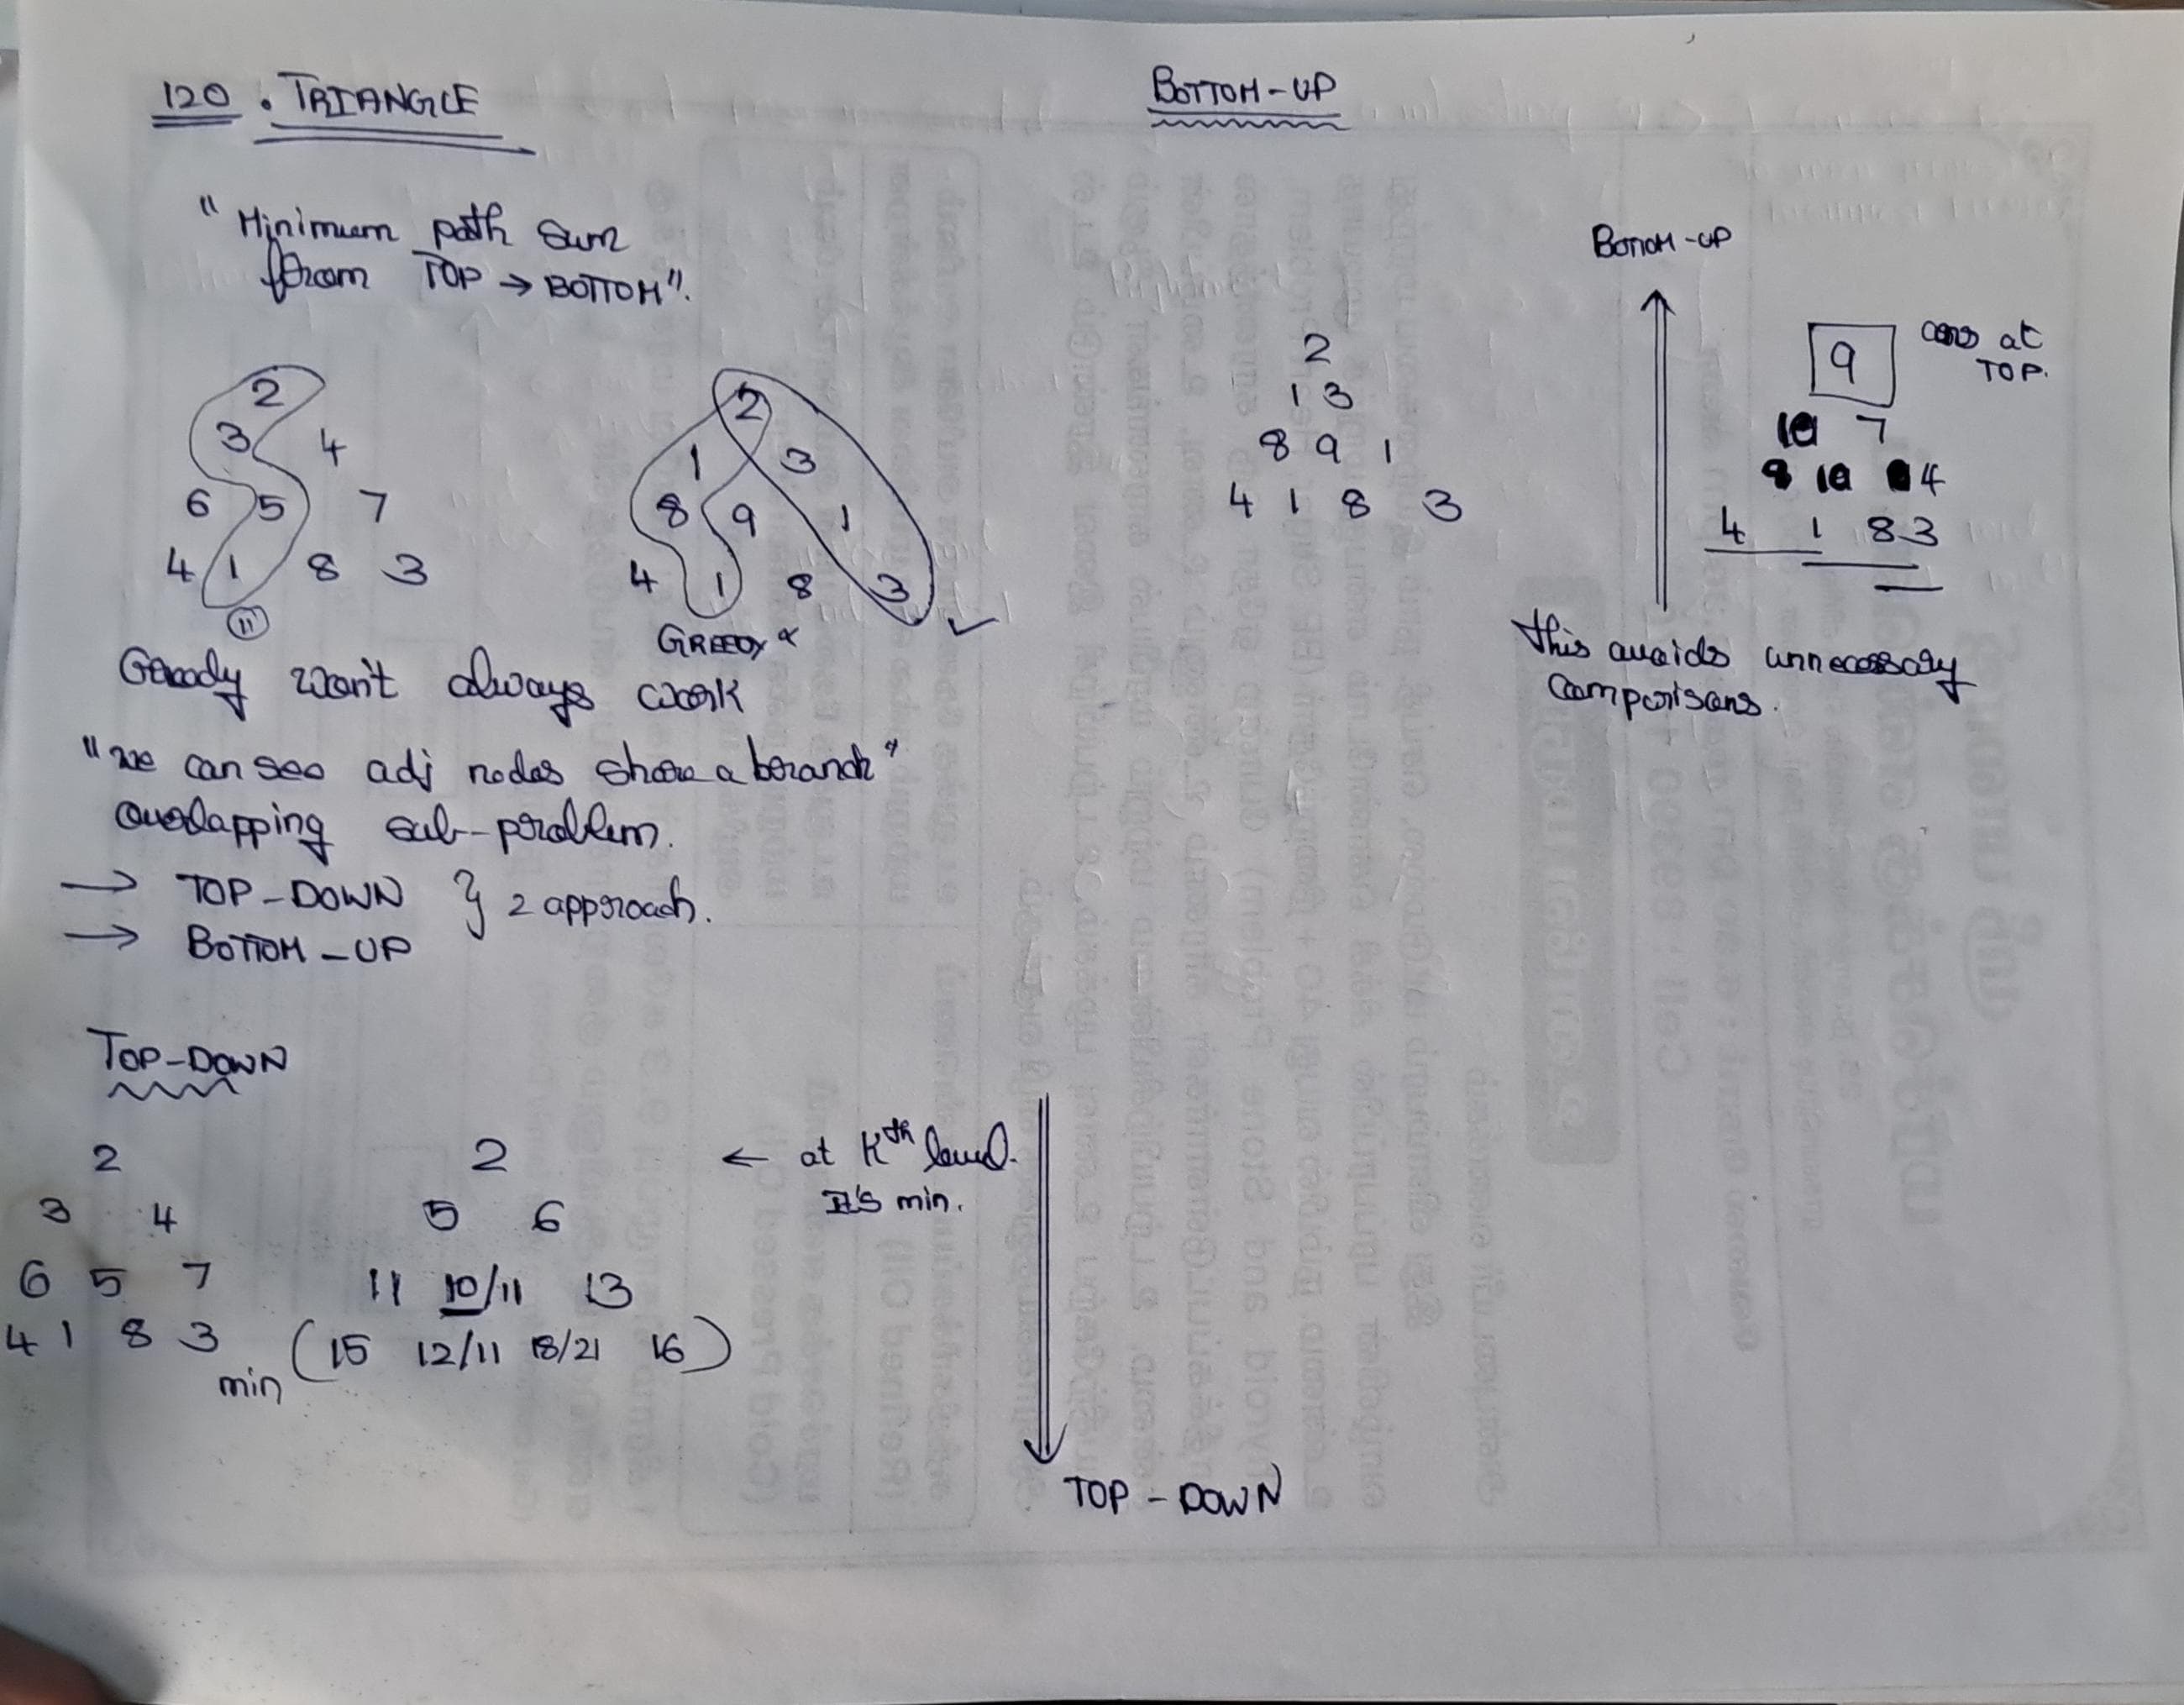 120 . TRIANGLE
"Minimum path sum
from TOP → BOTTOM".
2
3 4
6 5 7
4 1 8 3
11
2
1 3
8 9 1
4 1 8 3
GREEDY x
Greedy won't always work
"We can see adj nodes share a branch"
overlapping sub-problem.
→ TOP-DOWN } 2 approach.
→ BOTTOM-UP
TOP-DOWN
2
3 4
6 5 7
4 1 8 3
2
5 6
11 10/11 13
min (15 12/11 18/21 16)
← at Kth level.
It's min.
TOP - DOWN
BOTTOM-UP
2
1 3
8 9 1
4 1 8 3
BOTTOM-UP
9 ans at
TOP.
10 7
10 4
4 1 8 3
This avoids unnecessary
comparisons.